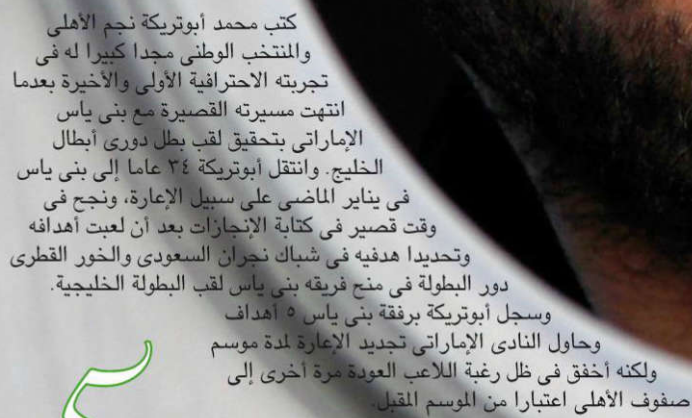 كتب محمد أبوتريكة نجم الأهلى
والمنتخب الوطنى مجدا كبيرا له فى
تجربته الاحترافية الأولى والأخيرة بعدما
انتهت مسيرته القصيرة مع بنى ياس
الإماراتى بتحقيق لقب بطل دورى أبطال
الخليج. وانتقل أبوتريكة ٣٤ عاما إلى بنى ياس
فى يناير الماضى على سبيل الإعارة، ونجح فى
وقت قصير فى كتابة الإنجازات بعد أن لعبت أهدافه
وتحديدا هدفيه فى شباك نجران السعودى والخور القطرى
دور البطولة فى منح فريقه بنى ياس لقب البطولة الخليجية.
وسجل أبوتريكة برفقة بنى ياس ٥ أهداف
وحاول النادى الإماراتى تجديد الإعارة لمدة موسم
ولكنه أخفق فى ظل رغبة اللاعب العودة مرة أخرى إلى
صفوف الأهلى اعتبارا من الموسم المقبل.